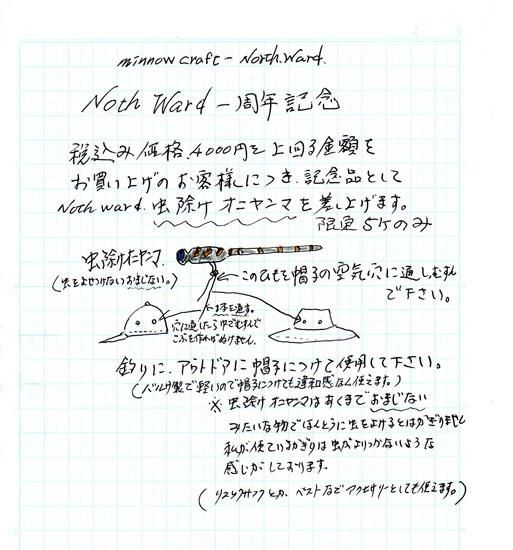 minnow craft - North.Ward.
Noth Ward 一周年記念
税込み価格.4000円を上回る金額を
お買い上げのお客様につき.記念品として
Noth ward.虫除けオニヤンマを差し上げます。
限定5ケのみ
虫除けオニヤンマ.
(虫をよせつけないおまじない。)
←このひもを帽子の空気穴に通しむすん
で下さい。
穴に通したら中でむすんで
こぶを作ればぬけません.
釣りに.アウトドアに帽子につけて使用して下さい。
(バルサ製で軽いので帽子につけても違和感なく使えます。)
※虫除けオニヤンマはあくまでおまじない
みたいな物でほんとうに虫をよけるとはかぎりません
私が使っているかぎりは虫がよりつかないような
感じがしております.
(リュックサックとか、ベストなどアクセサリーとしても使えます。)